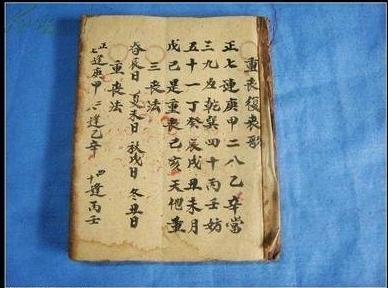 重喪復喪歌
正七連庚甲二八乙辛當
三九及乾巽四十丙壬妨
五十一丁癸辰戌丑未月
戊己是重喪己亥天地重
三喪法
春辰日 夏未日 秋戌日 冬丑日
重喪法
正七逢庚甲 二八逢乙辛 四十逢丙壬